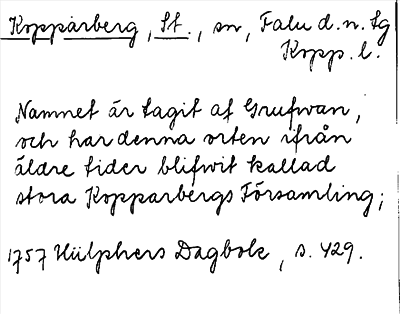 Kopparberg, St., sn, Falu d.n. tg
Kopp. l.
Namnet är tagit af Grufwan,
och har denna orten ifrån
äldre tider blifwit kallad
stora Kopparbergs Församling;
1757 Hülphers Dagbok, s. 429.